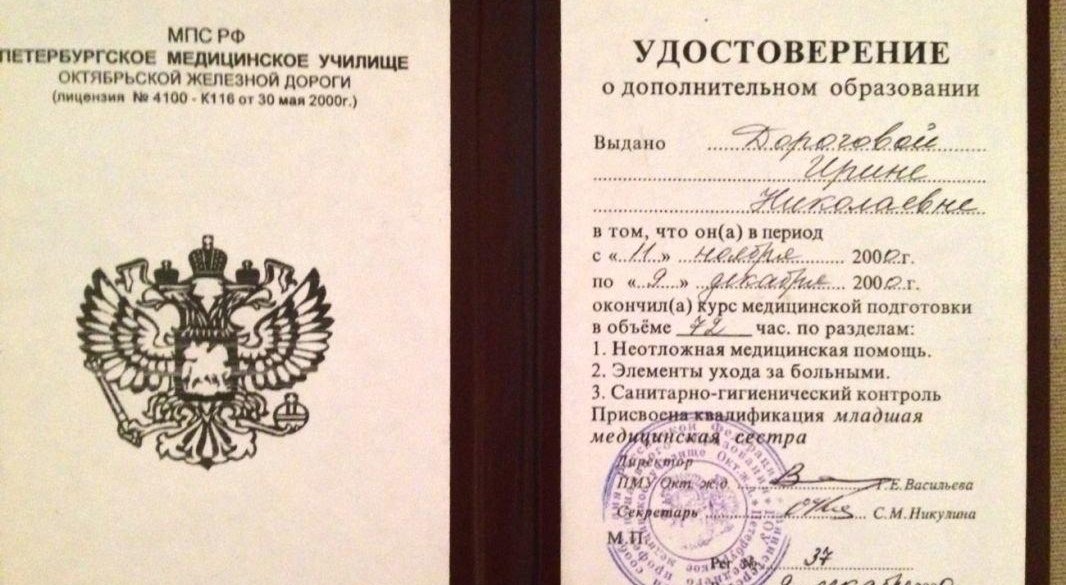 МПС РФ
ПЕТЕРБУРГСКОЕ МЕДИЦИНСКОЕ УЧИЛИЩЕ
ОКТЯБРЬСКОЙ ЖЕЛЕЗНОЙ ДОРОГИ
(лицензия № 4100 - К116 от 30 мая 2000г.)
УДОСТОВЕРЕНИЕ
о дополнительном образовании
Выдано Дороговой
Ирине
Николаевне
в том, что он(а) в период
с «11» ноября 2000г.
по «9» декабря 2000г.
окончил(а) курс медицинской подготовки
в объёме 72 час. по разделам:
1. Неотложная медицинская помощь.
2. Элементы ухода за больными.
3. Санитарно-гигиенический контроль
Присвоена квалификация младшая
медицинская сестра
Директор
ПМУ Окт. ж.д. Г.Е.Васильева
Секретарь С.М.Никулина
М.П.
Рег № 37
9 декабря